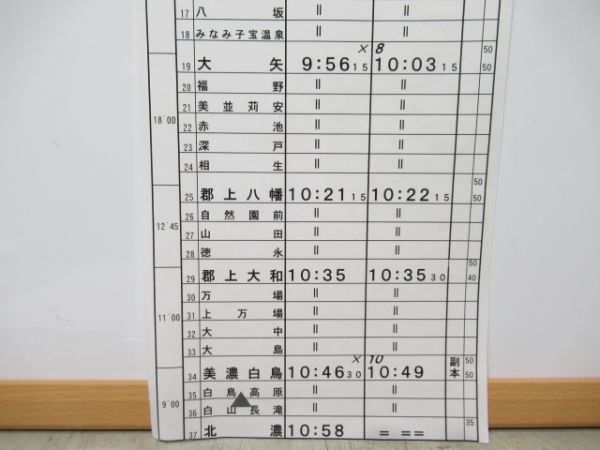 17 八坂 || ||
18 みなみ子宝温泉 || ||
× 8 50
19 大矢 9:56 15 10:03 15 50
20 福野 || ||
21 美並苅安 || ||
18'00
22 赤池 || ||
23 深戸 || ||
24 相生 || ||
50
25 郡上八幡 10:21 15 10:22 15 50
26 自然園前 || ||
12'45
27 山田 || ||
28 徳永 || ||
50
29 郡上大和 10:35 10:35 30 40
30 万場 || ||
11'00
31 上万場 || ||
32 大中 || ||
33 大島 || ||
× 10 副本 50
34 美濃白鳥 10:46 30 10:49 50
35 白鳥高原 || ||
9'00
36 白山長滝 || ||
35
37 北濃 10:58 = ==